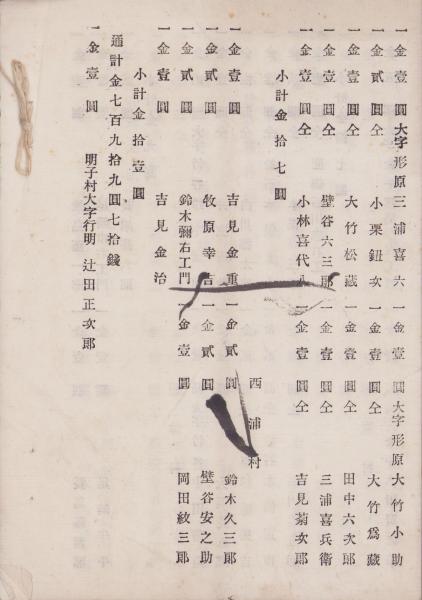 一金壹圓 大字形原 三浦喜六 一金壹圓 大字形原 大竹小助
一金貳圓 仝 小栗鈕次 一金壹圓 仝 大竹爲藏
一金壹圓 仝 大竹松藏 一金壹圓 仝 田中六次郎
一金壹圓 仝 壁谷六三郎 一金壹圓 仝 三浦喜兵衛
一金壹圓 仝 小林喜代八 一金壹圓 仝 吉見菊次郎
小計金拾七圓
西浦村
一金壹圓 吉見金重 一金貳圓 鈴木久三郎
一金貳圓 牧原幸吉 一金貳圓 壁谷安之助
一金貳圓 鈴木彌右工門 一金壹圓 岡田紋三郎
一金壹圓 吉見金治
小計金拾壹圓
通計金七百九拾九圓七拾錢
一金壹圓 明子村大字行明 辻田正次郎